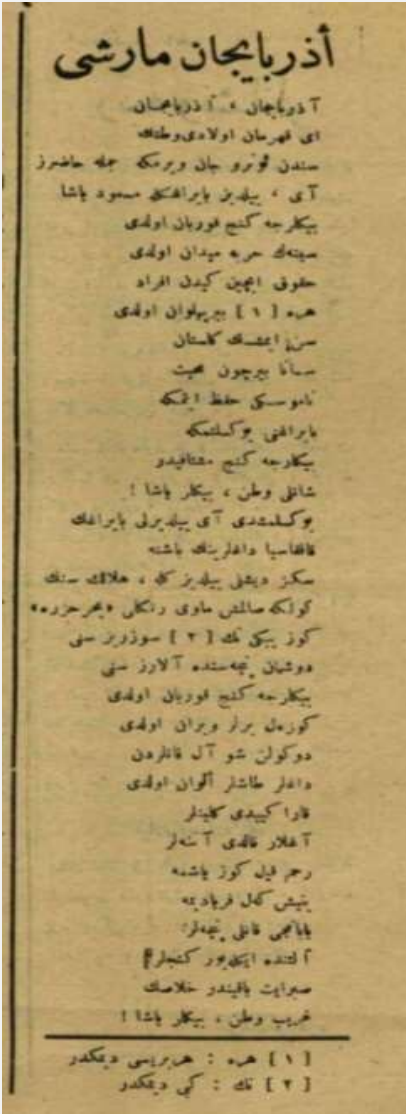 أذربایجان مارشی
آذربایجان ، آذربایجان
ای قهرمان اولادی وطنك
سندن ئوترو جان ویرمكه جمله حاضرز
آی ، ییلدیز بایراغكله مسعود یاشا
بیكلرجه كنج قوربان اولدی
سینه‌ك حربه میدان اولدی
حقوق ایچین كیدن افراد
هره [ ١ ] بیر پهلوان اولدی
سن ایتسك كلستان
سانا بیرچون محبت
ناموسكی حفظ ایتمكه
بایراغنی یوكسلتمكه
بیكلرجه كنج مشتاقیدر
شانلی وطن ، بیكلر یاشا !
یوكسلمشدی آی ییلدیزلی بایراغك
قافقاسیا داغلرینك باشنه
سكز دیشلی ییلدیز كله ، هلالك سنك
كولكه صالمش ماوی رنكلی «بحر خزره»
كوز ببكی تك [ ٢ ] سوزریز سنی
دوشمان پنجه‌سنده آلارز سنی
بیكلرجه كنج قوربان اولدی
كوزەل یرلر ویران اولدی
دوكولن شو آل قانلردن
داغلر طاشلر الوان اولدی
قارا كییدی كلینلر
آغلار قالدی آننه‌لر
رحم قیل كوز یاشنه
یتیش كل فریادینه
یابانجی قانلی پنجه‌لر
آلتنده ایكله‌یور كنجلر
صبر ایت یاقیندر خلاصك
غریب وطن ، بیكلر یاشا !
[ ١ ] هره : هربریسی دیمكدر
[ ٢ ] تك : كبی دیمكدر